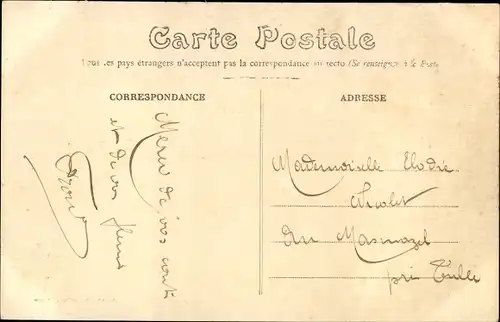 Carte Postale
Tous les pays étrangers n'acceptent pas la correspondance au recto (Se renseigner à la Poste
CORRESPONDANCE
ADRESSE
Merci de vos
et de vos fleurs
Mademoiselle Elodie
Au Masmazel
près Tulle